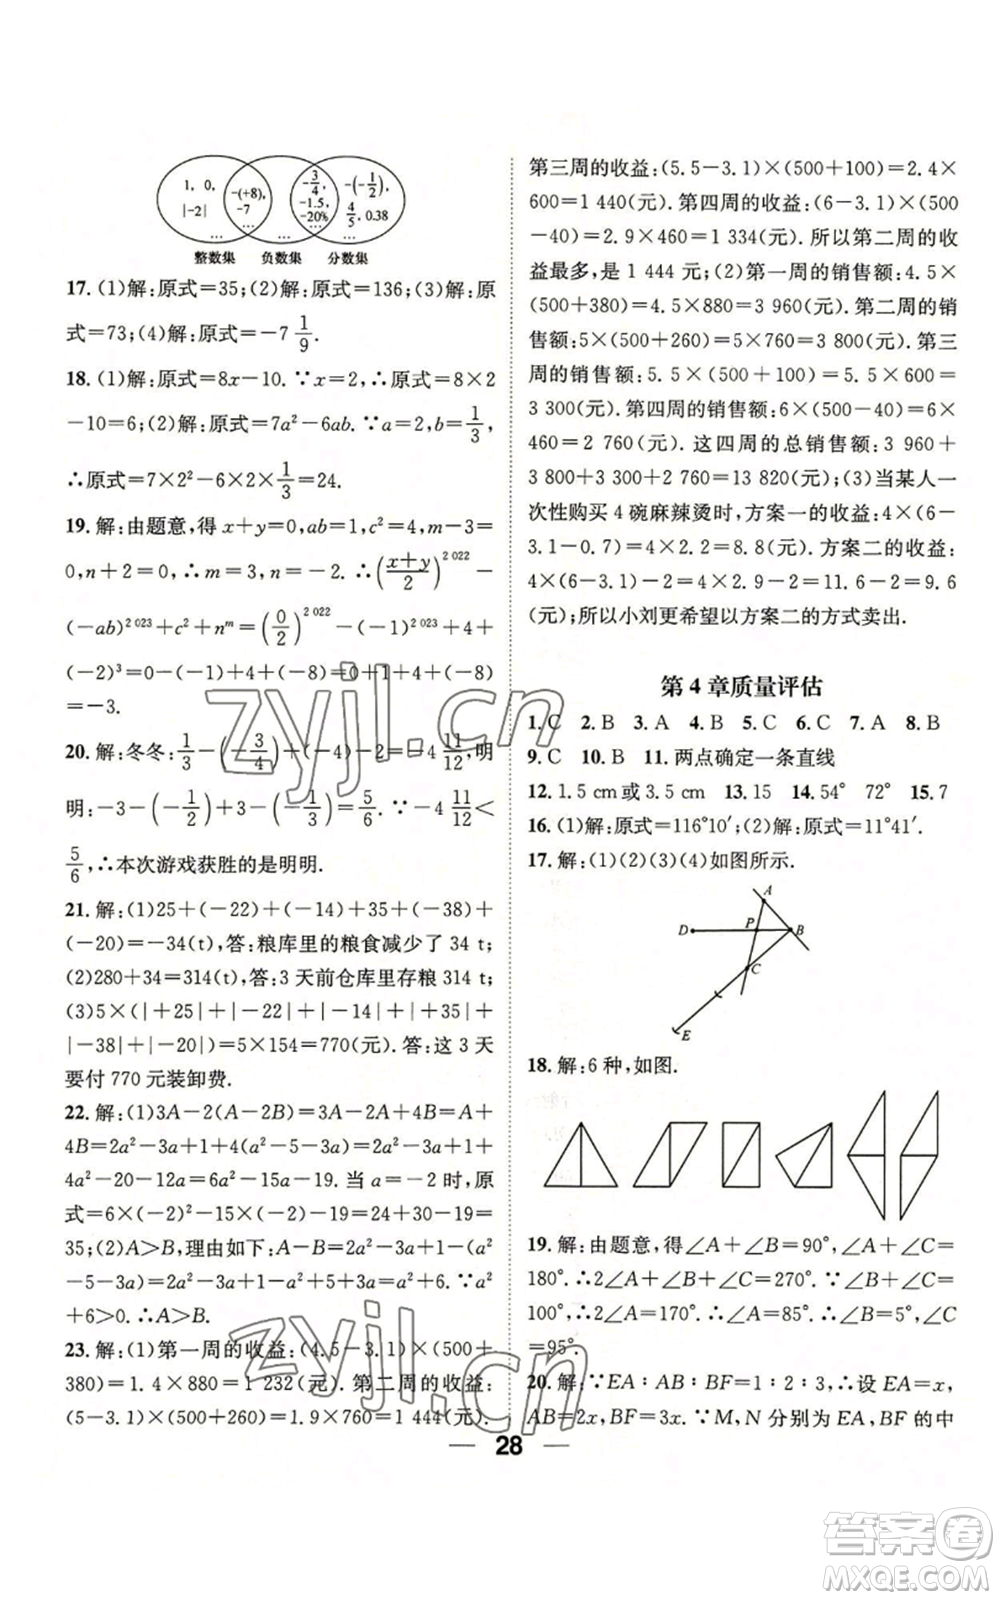 1, 0,
|-2|
…
-(+8),
-7
…
-3/4,
-1.5,
-20%
…
-(-1/2),
4/5, 0.38
…
整数集 负数集 分数集
17. (1)解:原式=35;(2)解:原式=136;(3)解:原
式=73;(4)解:原式=-7 1/9.
18. (1)解:原式=8x-10. ∵x=2,∴原式=8×2
-10=6;(2)解:原式=7a²-6ab. ∵a=2,b=1/3,
∴原式=7×2²-6×2×1/3=24.
19. 解:由题意,得 x+y=0,ab=1,c²=4,m-3=
0,n+2=0,∴m=3,n=-2. ∴((x+y)/2)^2 022-
(-ab)^2 023+c²+n^m=(0/2)^2 022-(-1)^2 023+4+
(-2)³=0-(-1)+4+(-8)=0+1+4+(-8)=
-3.
20. 解:冬冬:1/3-(-3/4)+(-4)-2=-4 11/12,明
明:-3-(-1/2)+3-(-1/3)=5/6. ∵-4 11/12<
5/6,∴本次游戏获胜的是明明.
21. 解:(1)25+(-22)+(-14)+35+(-38)+
(-20)=-34(t),答:粮库里的粮食减少了 34 t;
(2)280+34=314(t),答:3 天前仓库里存粮 314 t;
(3)5×(|+25|+|-22|+|-14|+|+35|+
|-38|+|-20|)=5×154=770(元). 答:这 3 天
要付 770 元装卸费.
22. 解:(1)3A-2(A-2B)=3A-2A+4B=A+
4B=2a²-3a+1+4(a²-3a-5)=2a²-3a+1+
4a²-12a-20=6a²-15a-19. 当 a=-2 时,原
式=6×(-2)²-15×(-2)-19=24+30-19=
35;(2)A>B. 理由如下:A-B=2a²-3a+1-(a²
-5-3a)=2a²-3a+1-a²+5+3a=a²+6. ∵a²
+6>0. ∴A>B.
23. 解:(1)第一周的收益:(4.5-3.1)×(500+
380)=1.4×880=1 232(元). 第二周的收益:
(5-3.1)×(500+260)=1.9×760=1 444(元).
第三周的收益:(5.5-3.1)×(500+100)=2.4×
600=1 440(元). 第四周的收益:(6-3.1)×(500
-40)=2.9×460=1 334(元). 所以第二周的收
益最多,是 1 444 元;(2)第一周的销售额:4.5×
(500+380)=4.5×880=3 960(元). 第二周的销
售额:5×(500+260)=5×760=3 800(元). 第三
周的销售额:5.5×(500+100)=5.5×600=
3 300(元). 第四周的销售额:6×(500-40)=6×
460=2 760(元). 这四周的总销售额:3 960+
3 800+3 300+2 760=13 820(元);(3)当某人一
次性购买 4 碗麻辣烫时,方案一的收益:4×(6-
3.1-0.7)=4×2.2=8.8(元). 方案二的收益:
4×(6-3.1)-2=4×2.9-2=11.6-2=9.6
(元);所以小刘更希望以方案二的方式卖出.
第 4 章质量评估
1. C 2. B 3. A 4. B 5. C 6. C 7. A 8. B
9. C 10. B 11. 两点确定一条直线
12. 1.5 cm或 3.5 cm 13. 15 14. 54° 72° 15. 7
16. (1)解:原式=116°10′;(2)解:原式=11°41′.
17. 解:(1)(2)(3)(4)如图所示.
A
D P B
C
E
18. 解:6 种,如图.
19. 解:由题意,得∠A+∠B=90°,∠A+∠C=
180°. ∴2∠A+∠B+∠C=270°. ∵∠B+∠C=
100°,∴2∠A=170°. ∴∠A=85°. ∴∠B=5°,∠C
=95°.
20. 解:∵EA∶AB∶BF=1∶2∶3,∴设 EA=x,
AB=2x,BF=3x. ∵M,N 分别为 EA,BF 的中
28
zyjl.cn
zyjl.cn
答案卷
MXQE.COM